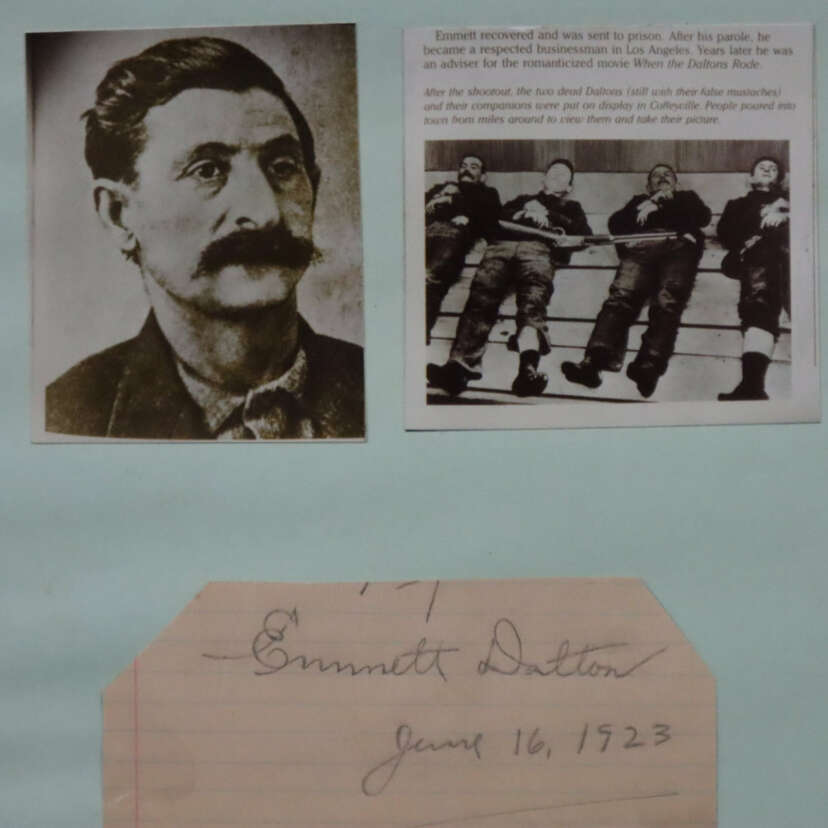 Emmett recovered and was sent to prison. After his parole, he
became a respected businessman in Los Angeles. Years later he was
an adviser for the romanticized movie When the Daltons Rode.
After the shootout, the two dead Daltons (still with their false mustaches)
and their companions were put on display in Coffeyville. People poured into
town from miles around to view them and take their picture.
Emmett Dalton
June 16, 1923